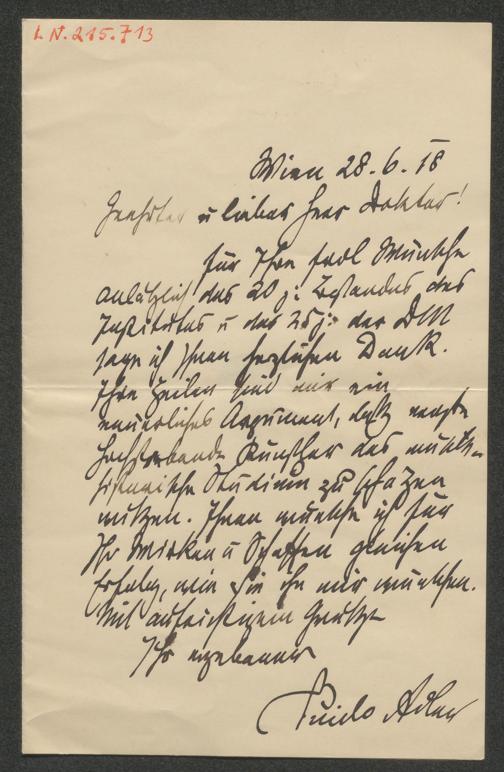 I. N. 215.713
Wien 28. 6. 18
Geehrter u lieber Herr Doktor!
Für Ihre frdl Wünsche
anläßlich des 20 j. Bestandes des
Institutes u des 25 j. der DTÖ
sage ich Ihnen herzlichen Dank.
Ihre Zeilen sind mir ein
neuerliches Argument, daß ernste
hochstrebende Künstler das musik-
historische Studium zu schäzen
wissen. Ihnen wünsche ich für
Ihr Wirken u Schaffen gleichen
Erfolg, wie Sie ihn mir wünschen.
Mit aufrichtigem Gruße
Ihr ergebener
Guido Adler